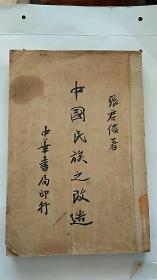 張君俊著
中國民族之改造
中華書局印行